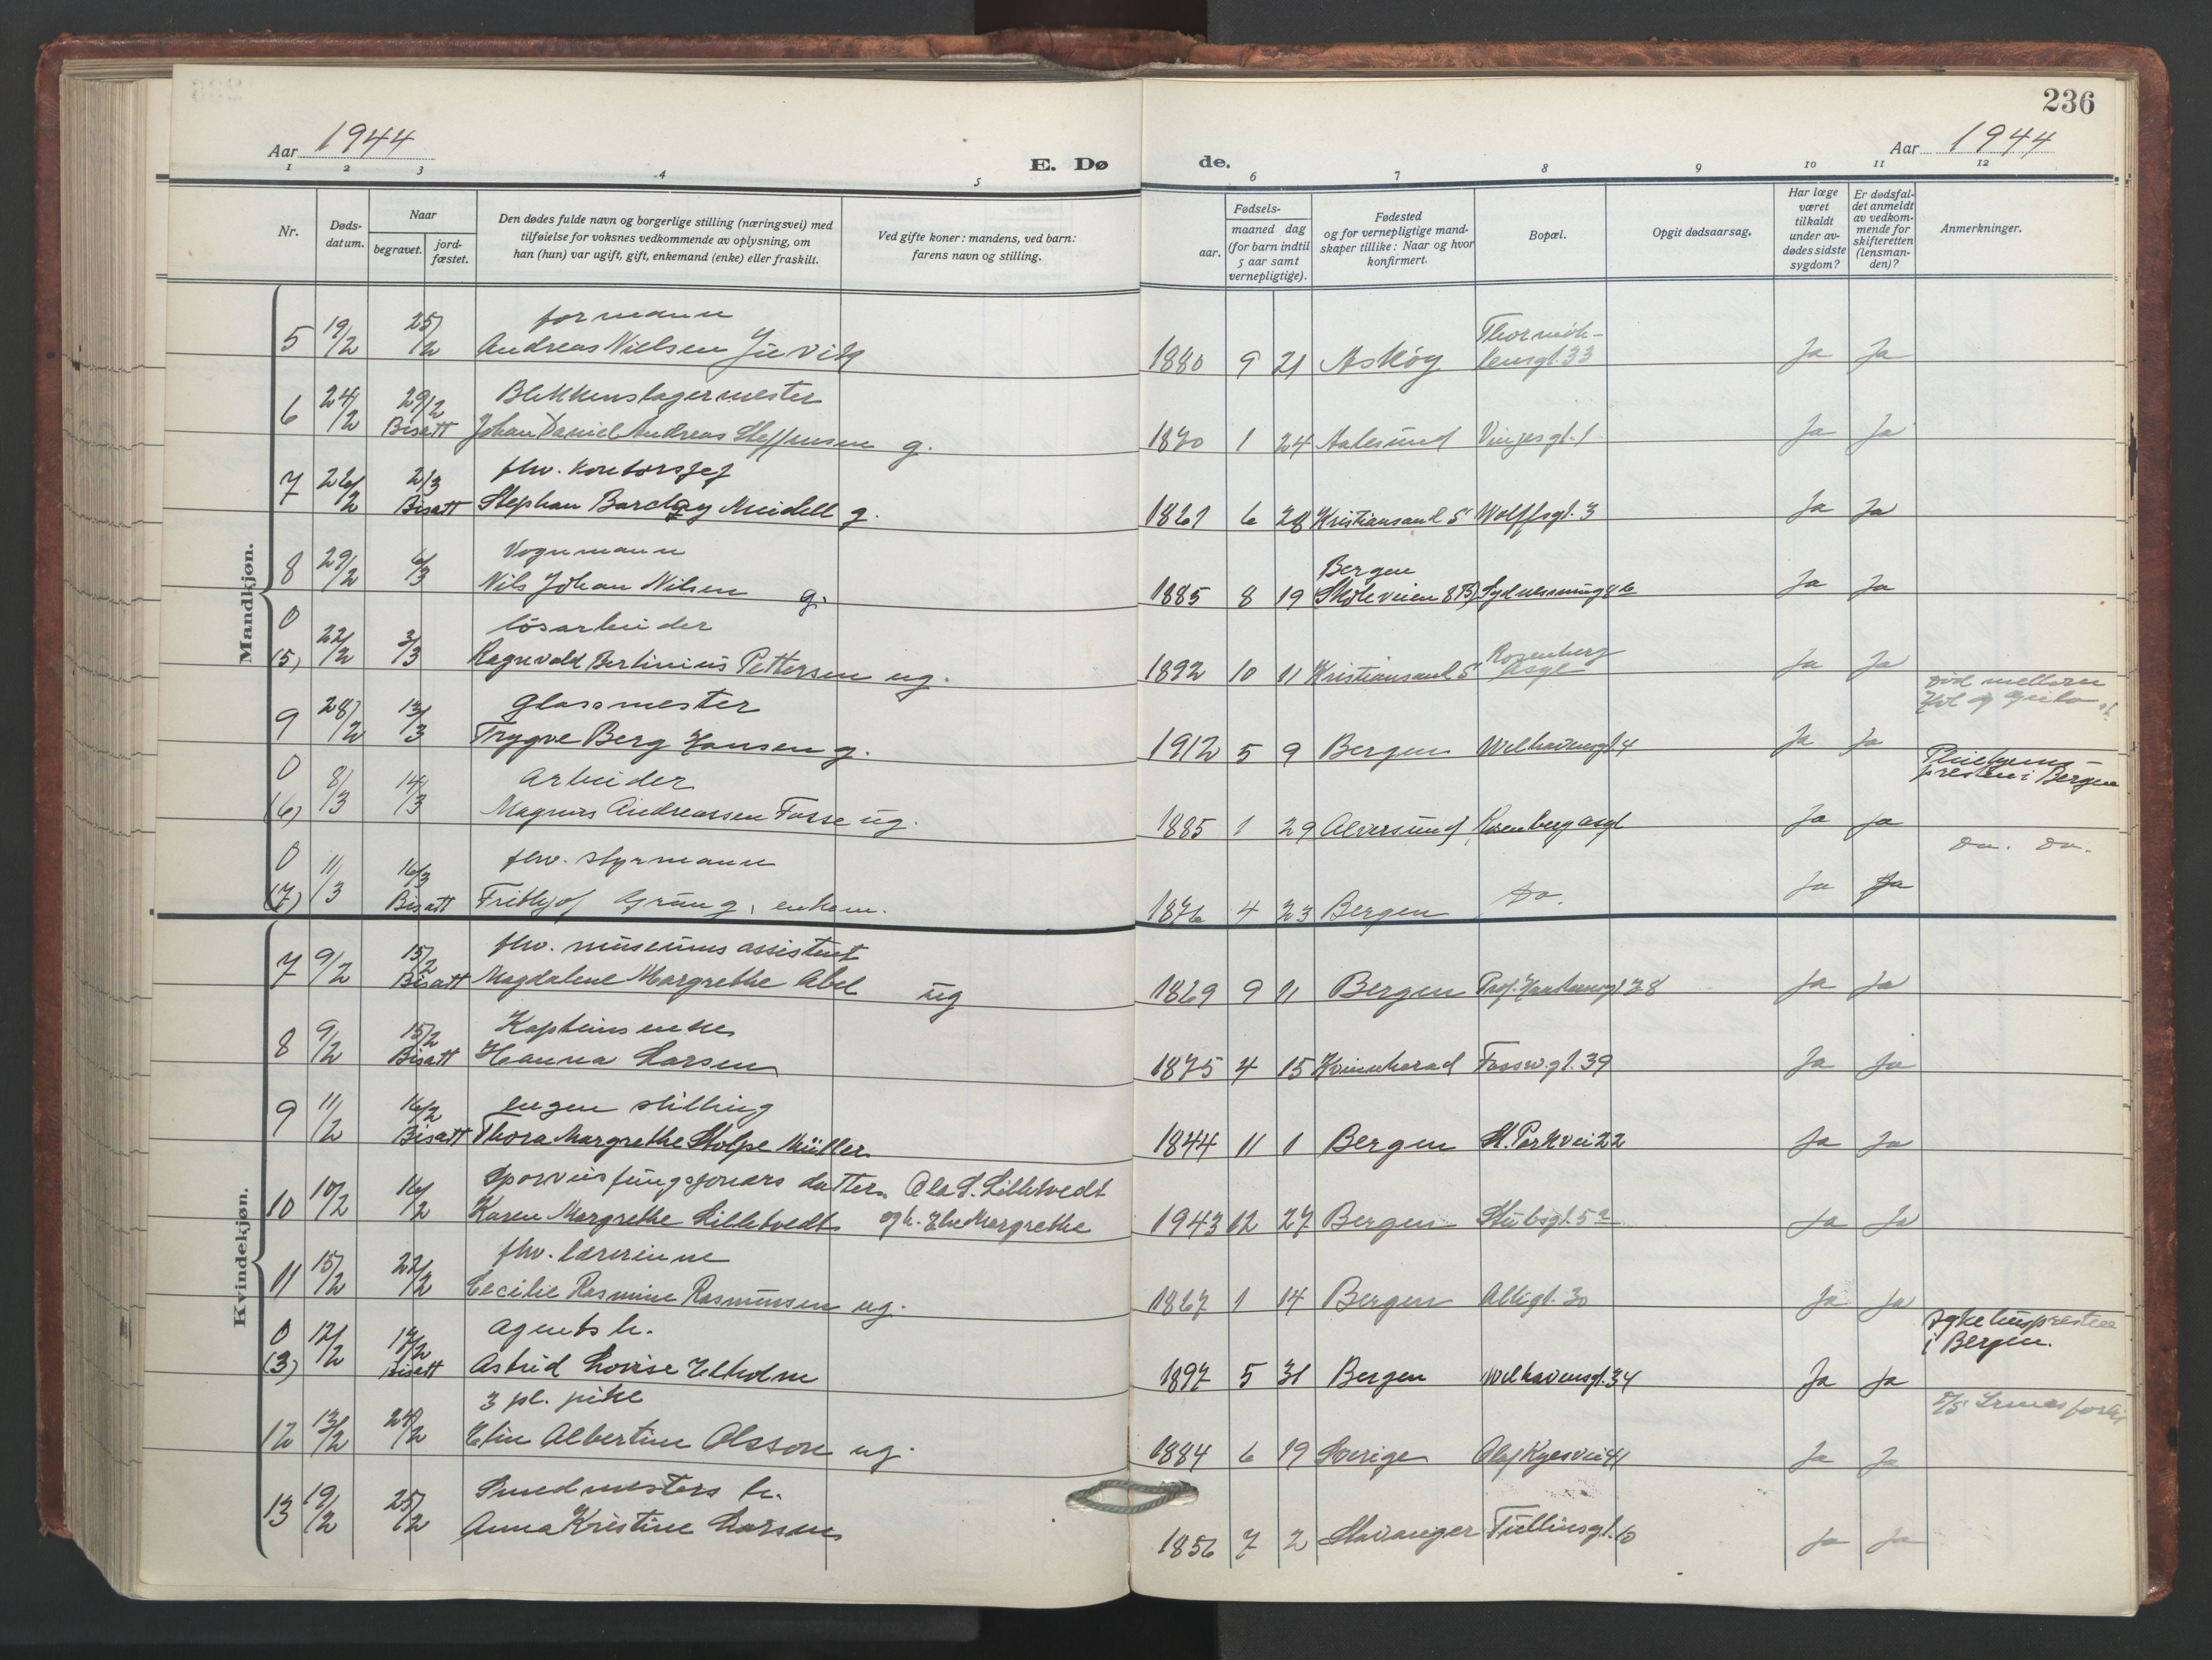 236
Aar 1944
E. Dø
de.
Aar 1944
1 2 3 4 5 6 7 8 9 10 11 12
Nr.
Døds-
datum.
Naar
begravet.
jord-
fæstet.
Den dødes fulde navn og borgerlige stilling (næringsvei) med
tilføielse for voksnes vedkommende av oplysning, om
han (hun) var ugift, gift, enkemand (enke) eller fraskilt.
Ved gifte koner: mandens, ved barn:
farens navn og stilling.
Fødsels-
aar.
maaned dag
(for barn indtil
5 aar samt
vernepligtige).
Fødested
og for vernepligtige mand-
skaper tillike: Naar og hvor
konfirmert.
Bopæl.
Opgit dødsaarsag.
Har læge
været
tilkaldt
under av-
dødes sidste
sygdom?
Er dødsfal-
det anmeldt
av vedkom-
mende for
skifteretten
(lensman-
den)?
Anmerkninger.
Mandkjøn.
formann
5 19/2 25/2 Andreas Nielsen 1880 9 21 Askøy Thormøh-
lensgt. 33 Ja Ja
Blikkenslagermester
6 24/2 29/2 Bisatt Johan Daniel Andreas Steffensen g. 1870 1 24 Aalesund Vinjesgt. 1 Ja Ja
fhv. kontorsjef
7 26/2 2/3 Bisatt Stephan Barclay Meidell g. 1861 6 28 Kristiansand S Wolffsgt. 3 Ja Ja
Vognmann
8 29/2 6/3 Nils Johan Nilsen g. 1885 8 19 Bergen
Skoleveien 8B) Ja Ja
løsarbeider
0 (5) 22/2 3/3 Ragnvald Bertinius Pettersen ug. 1892 10 11 Kristiansand S Rosenberg
Asyl Ja Ja
glassmester
9 28/2 13/3 Trygve Berg Hansen g. 1912 5 9 Bergen Welhavensgt. 4 Ja Ja død mellom
Hol og Geilo st.
Arbeider
0 (6) 8/3 14/3 Magnus Andreassen Fosse ug. 1885 1 29 Alversund Rosenberg asyl Ja Ja Pleiehjems-
presten i Bergen
fhv. styrmann
0 (7) 11/3 16/3 Bisatt Frithjof Grung, enkem. 1876 4 23 Bergen Do. Ja Ja Do. Do.
Kvindekjøn.
fhv. museums assistent
7 9/2 15/2 Bisatt Magdalene Margrethe Abel ug 1869 9 11 Bergen Ja Ja
Kapteins enke
8 9/2 15/2 Bisatt Hanna Larsen 1875 4 15 Kvinnherad Fosswgt. 39 Ja Ja
ingen stilling
9 11/2 16/2 Bisatt Thora Margrethe Stolpe Müller 1844 11 1 Bergen St. Parkvei 22 Ja Ja
Sporveisfungsjonærs datter Ola S. Lilletvedt
10 10/2 16/2 Karen Margrethe Lilletvedt og h. Else Margrethe 1943 12 27 Bergen Stubsgt. 5 Ja Ja
fhv. lærerinne
11 15/2 22/2 Cecilie Rasmine Rasmussen ug. 1867 1 14 Bergen Allegt. 30 Ja Ja
Agents h.
0 (3) 12/2 17/2 Bisatt Astrid Lovise 1897 5 31 Bergen Welhavensgt. 34 Ja Ja Sykehuspresten
i Bergen.
3 pl. pike
12 13/2 24/2 Elin Albertine Olsson ug. 1884 6 19 Sverige Olaf Ryesvei 41 Ja Ja
Smedmesters h.
13 19/2 25/2 Anna Kristine Larsen 1856 7 2 Stavanger Tullinsgt. 10 Ja Ja